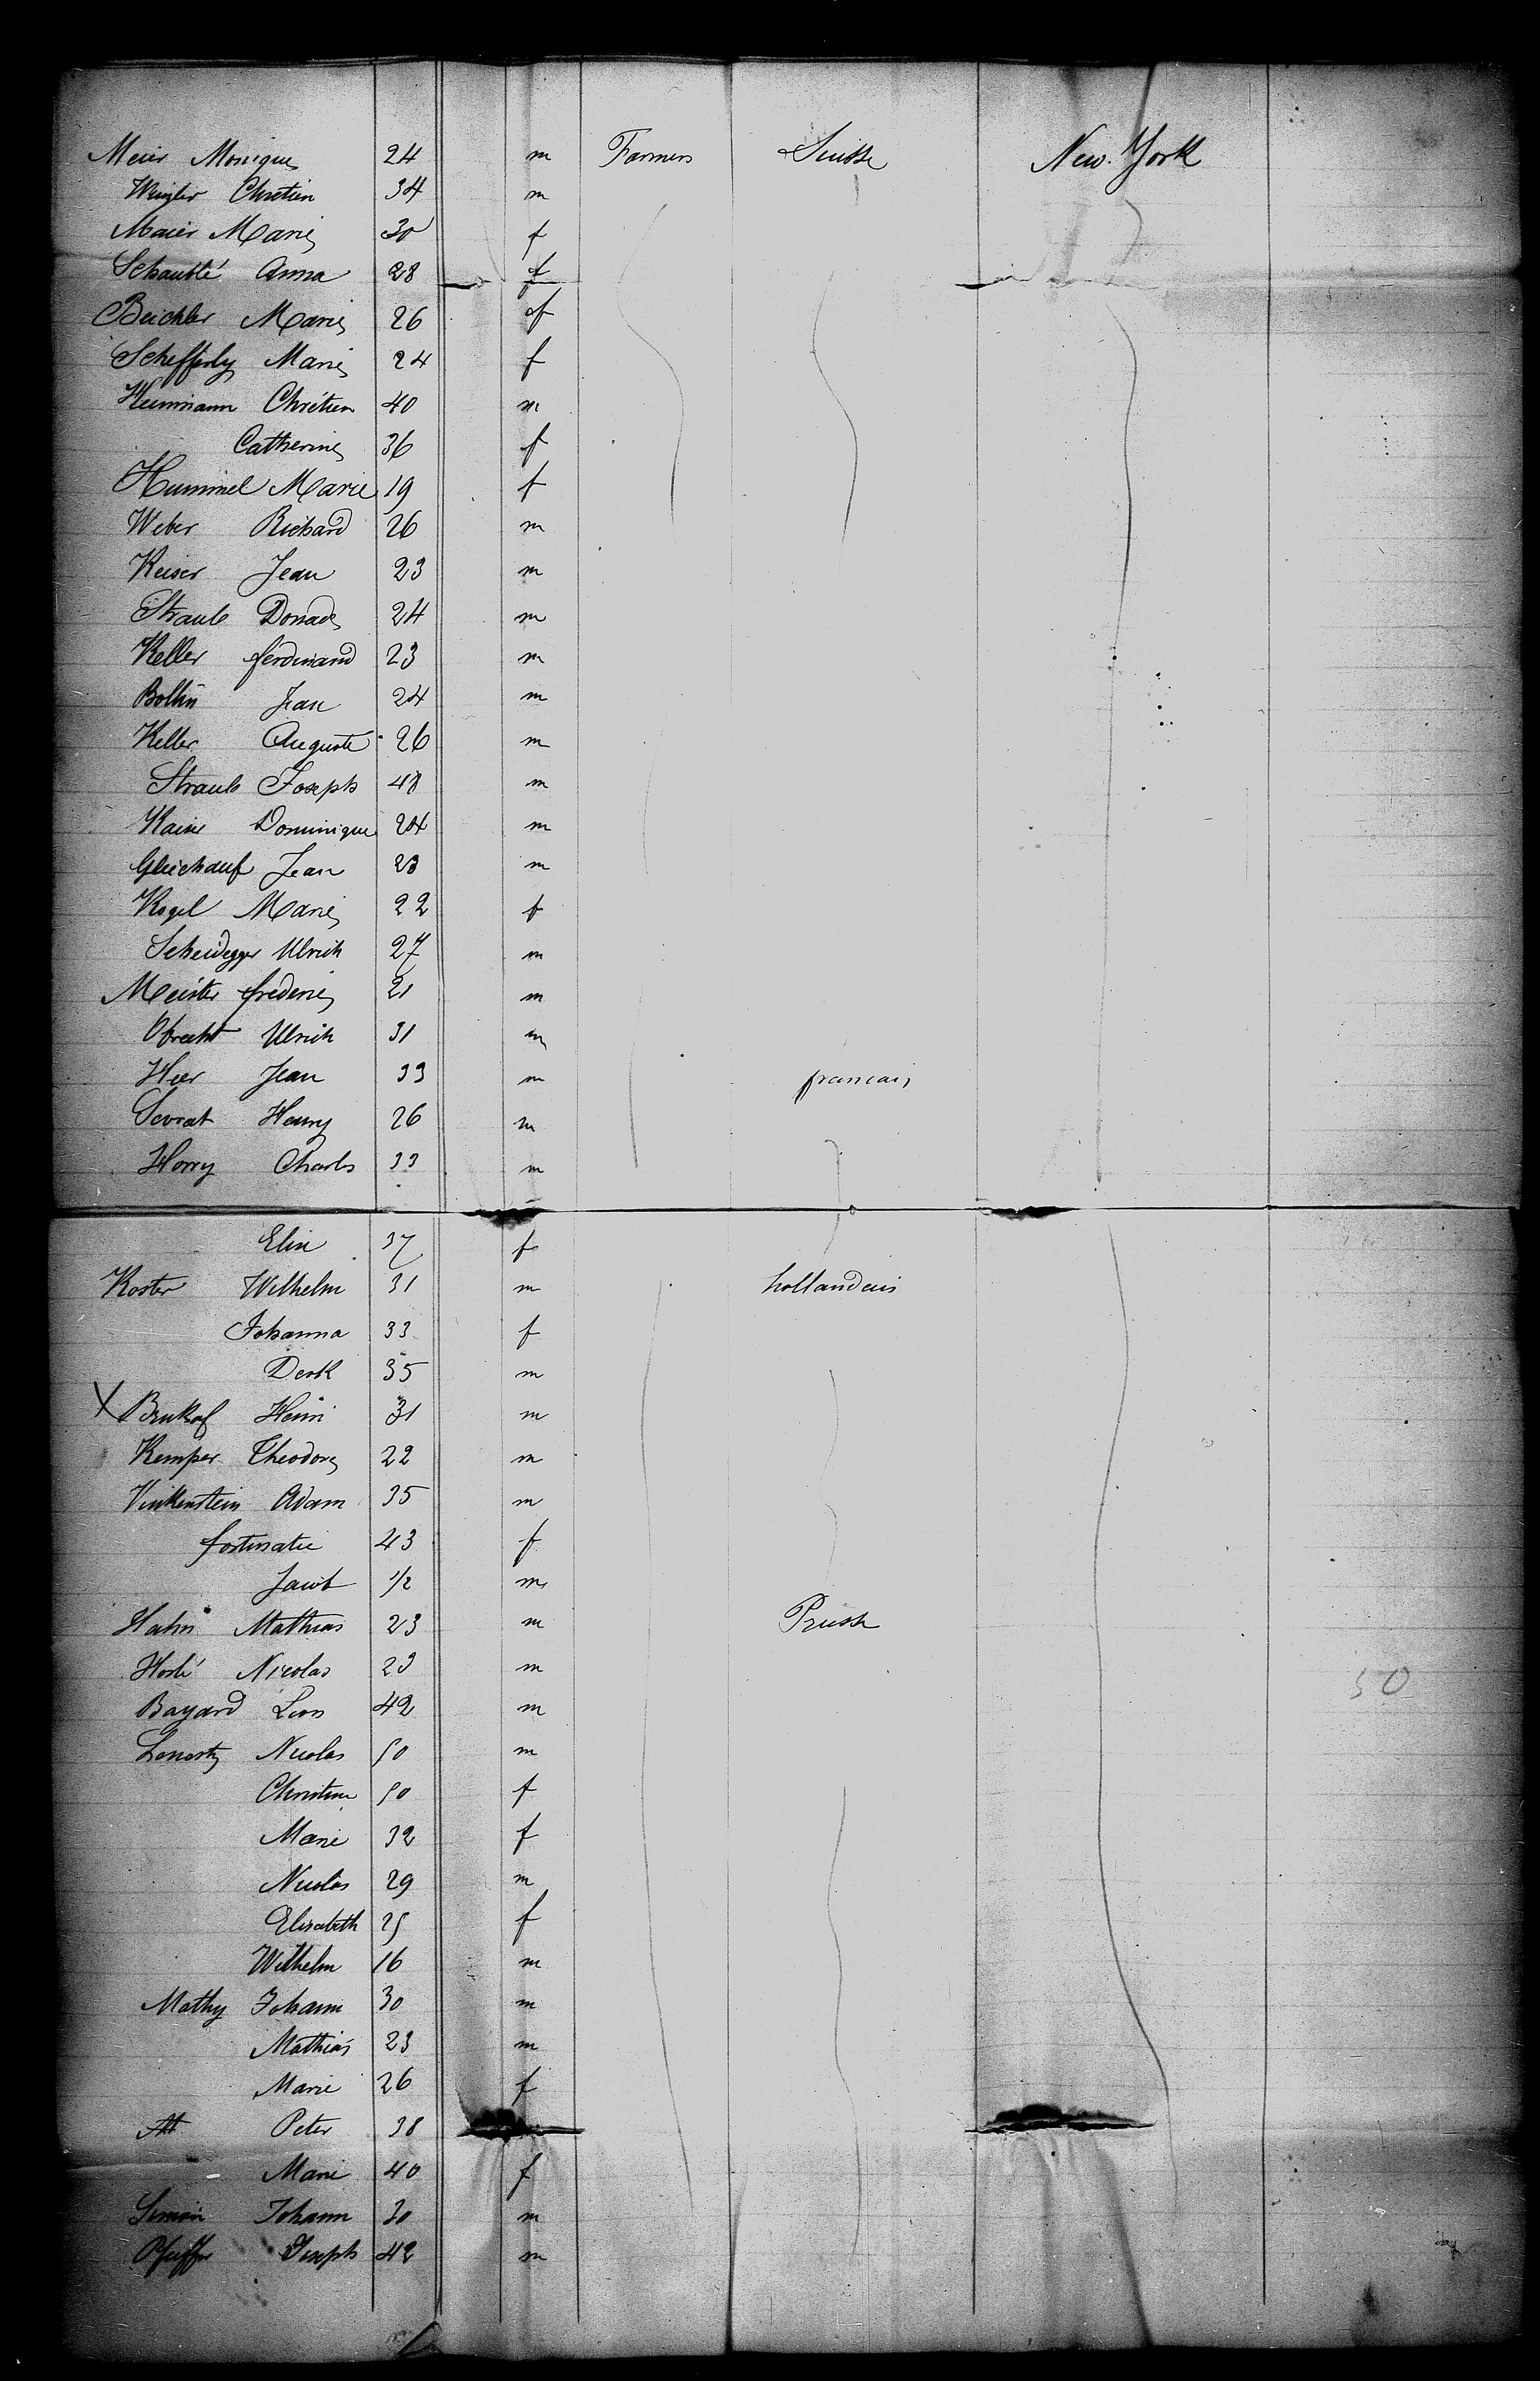 Meier Monique 24 m Farmers Suisse New. York
Wengler Chretien 34 m
Maier Marie 30 f
Schaublé Anna 28 f
Beichler Marie 26 f
Schefferly Marie 24 f
Heinmann Chrétien 40 m
Catherine 36 f
Hummel Marie 19 f
Weber Richard 26 m
Keiser Jean 23 m
Straub Donade 24 m
Keller ferdinand 23 m
Bollin Jean 24 m
Keller Auguste 26 m
Straub Joseph 48 m
Kaiser Dominique 24 m
Gleichauf Jean 23 m
Kogel Marie 22 f
Scheidegger Ulrich 27 m
Meister frederic 21 m
Obrecht Ulrich 31 m
Heer Jean 33 m francais
Sevrat Henry 26 m
Horry Charles 33 m
Elin 37 f
Koster Wilhelm 31 m hollandais
Johanna 33 f
Derk 35 m
X Brukof Henri 31 m
Kemper Theodore 22 m
Vinkenstein Adam 35 m
fortunatie 43 f
Jacob 1/2 m
Hahn Mathias 23 m Prusse
Nicolas 23 m 50
Bayard Leon 42 m
Lenertz Nicolas 50 m
Christine 50 f
Marie 32 f
Nicolas 29 m
Elisabeth 25 f
Wilhelm 16 m
Mathy Johann 30 m
Mathias 23 m
Marie 26 f
Peter 38
Marie 40 f
Simon Johann 30 m
Pfeiffer Joseph 42 m